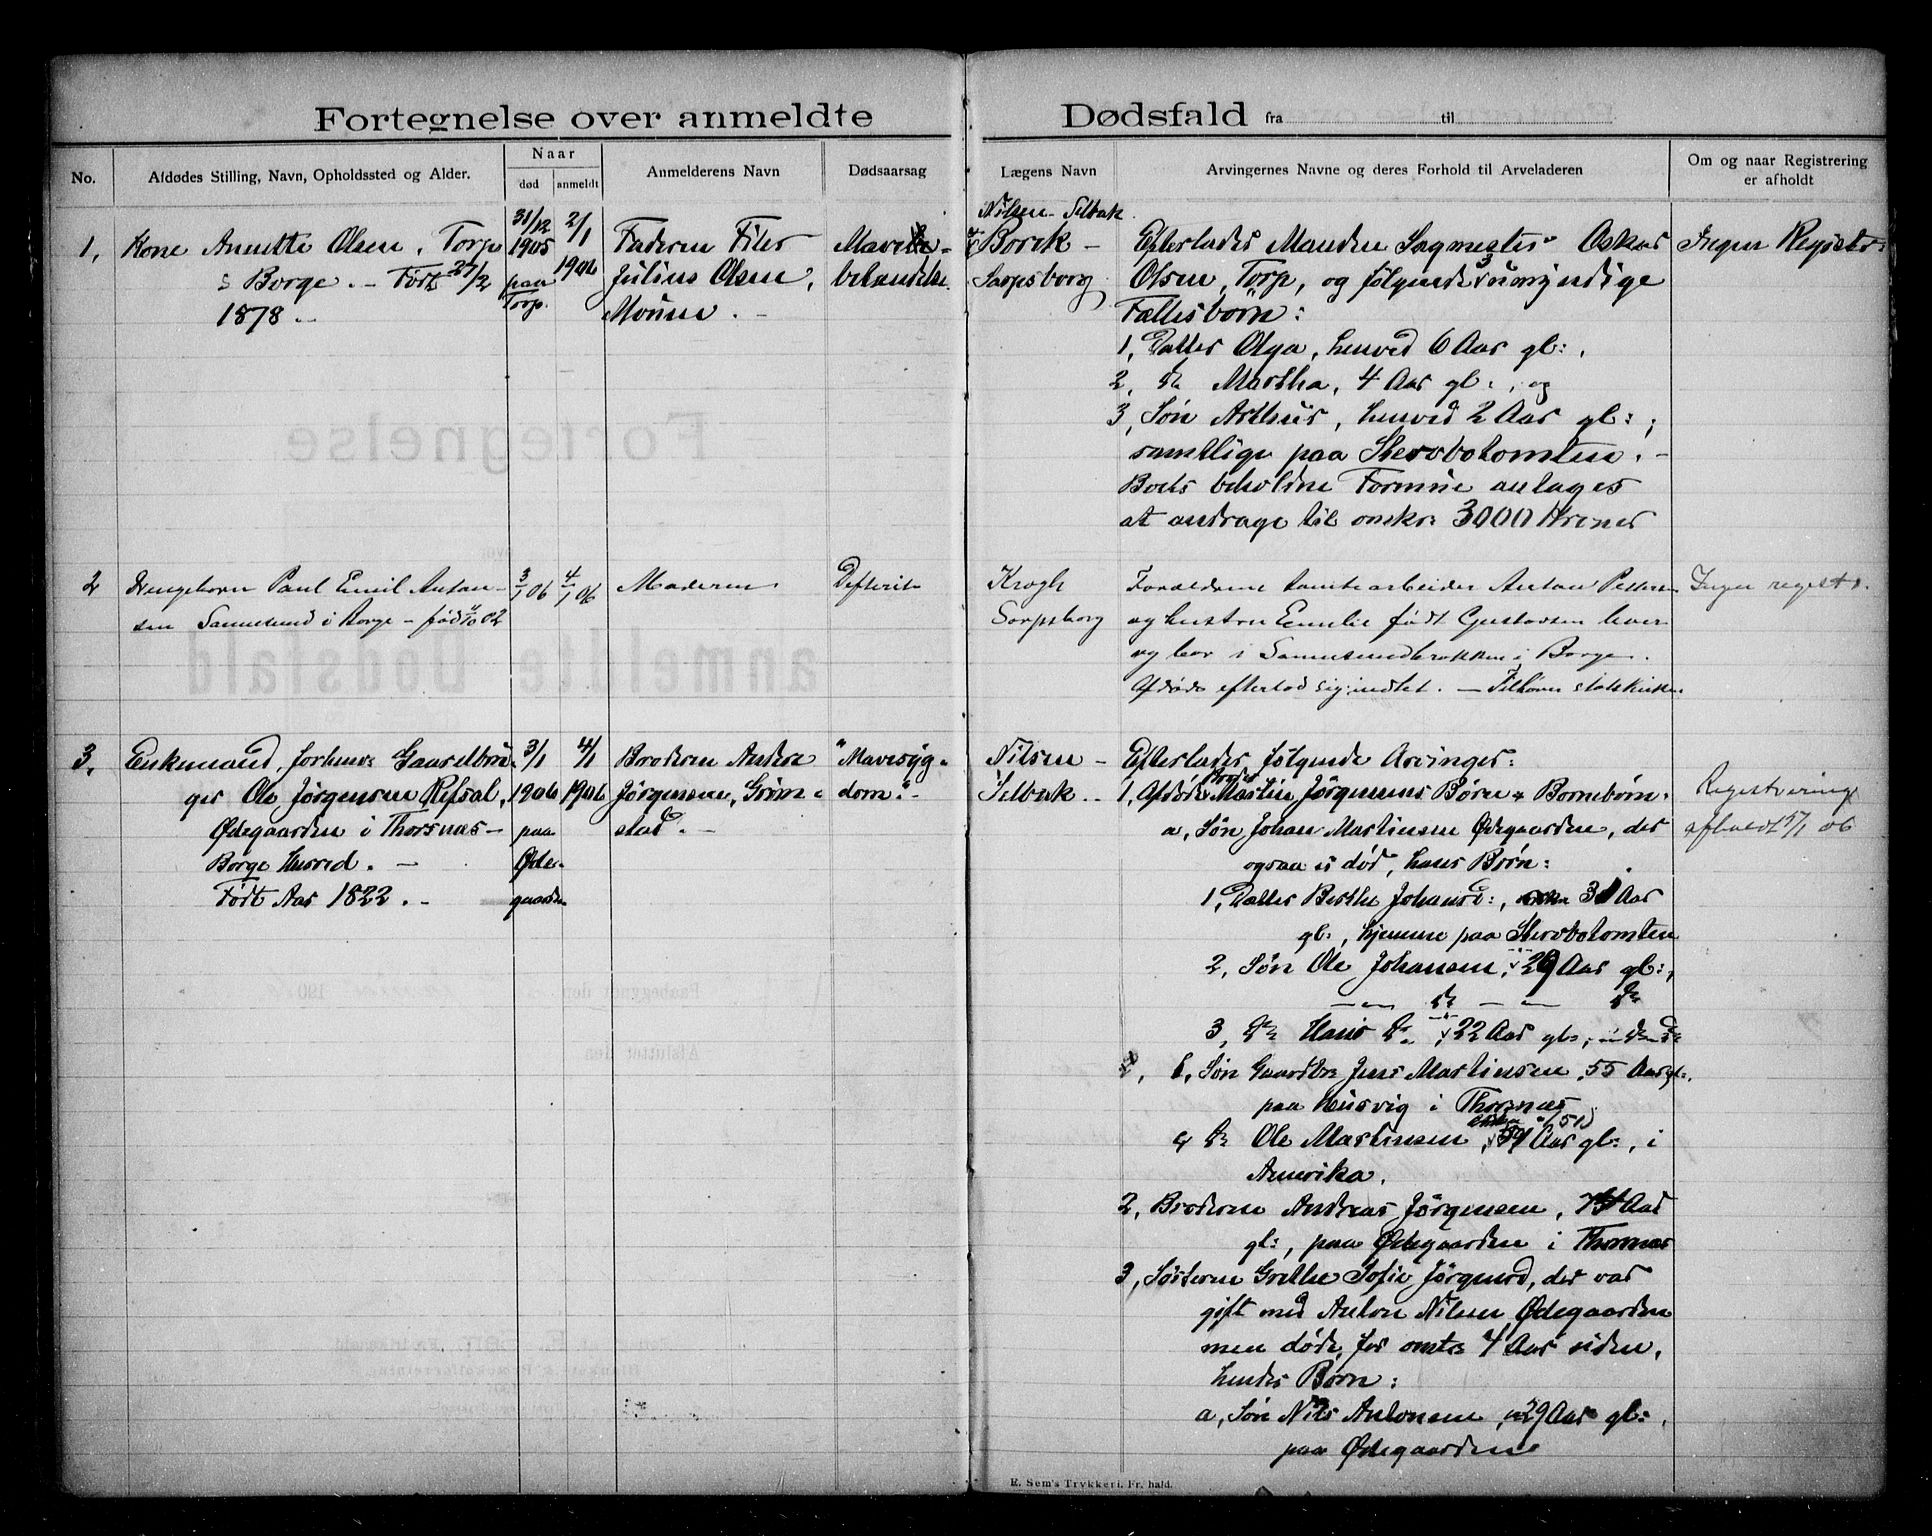 Fortegnelse over anmeldte Dødsfald fra til
No.
Afdødes Stilling, Navn, Opholdssted og Alder.
Naar
død
anmeldt
Anmelderens Navn
Dødsaarsag
Lægens Navn
Arvingernes Navne og deres Forhold til Arveladeren
Om og naar Registrering
er afholdt
1,
Kone Annette Olsen, Torp
i Borge. – Født 27/2
1878..
31/12
1905
paa
Torp.
2/1
1906
Faderen
Julius Olsen,
Moum. –
betændelse.
Nilsen - Selbak
Borck –
Sarpsborg
Efterlader Manden Sagmester Oskar
Olsen, Torp, og følgende 3 umyndige
Fællesbørn:
1, Datter Olga, henved 6 Aar gl:,
2, do Martha, 4 Aar gl:, og
3, Søn Arthur, henved 2 Aar gl:;
samtlige paa Stervbotomten. –
Boets beholdne Formue antages
at andrage til omkr: 3000 Kroner
Ingen Registr:
2
Drengebarn Paul Emil Anton-
sen Sannesund i Borge – født 02
3/1 06
4/1 06
Moderen.
Difterit
Krogh
Sarpsborg
Forældrene tomtearbeider Anton Pettersen
og hustru Emilie født Gustavsen lever
og bor i Sannesundbrakken i Borge.
Afdøde efterlod sig intet. – Tilhører statskirken
Ingen registr.
3,
Enkemand, forhenv: Gaardbru-
ger Ole Jørgensen Refsal,
Ødegaarden i Thorsnæs –
Borge Herred. –
Født Aar 1822..
3/1
1906
paa
Øde-
gaarden
4/1
1906
Broderen Andreas
Jørgensen, Grim-
stad. –
"Mavesyg-
dom."
Nilsen –
Selbak..
Efterlader følgende Arvinger:
1, Afdøde Broder Martin Jørgensens Børn & Børnebørn:
a, Søn Johan Martinsen Ødegaarden, der
ogsaa er død, hans Børn:
1, Datter Berthe Johansd:, 31 Aar
gl:, hjemme paa Stervbotomten
2, Søn Ole Johansen, 29 Aar gl:,
— do — do
3, do Hans do, 22 Aar gl:,
b, Søn Gaardbr: Jens Martinsen, 55 Aar gl:,
paa Husvig i Thorsnæs
c, do Ole Martinsen, Aar gl:, i
Amerika.
2, Broderen Andreas Jørgensen, Aar
gl:, paa Ødegaarden i Thorsnæs
3, Søsteren Grethe Sofie Jørgensd, der var
gift med Anton Nilsen Ødegaarden
men døde for omtr: 4 Aar siden,
hendes Børn:
a, Søn Nils Antonsen, 29 Aar gl:,
paa Ødegaarden
Registrering
afholdt 5/1 06
E. Sem's Trykkeri, Fr. hald.